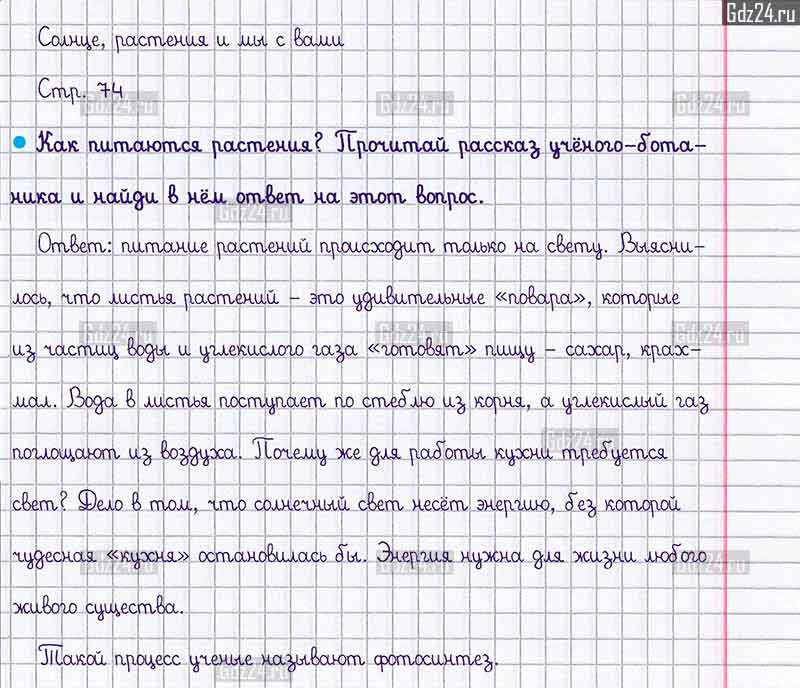 Gdz24.ru
Солнце, растения и мы с вами
Стр. 74
Как питаются растения? Прочитай рассказ учёного-бота-
ника и найди в нём ответ на этот вопрос.
Ответ: питание растений происходит только на свету. Выясни-
лось, что листья растений – это удивительные «повара», которые
из частиц воды и углекислого газа «готовят» пищу – сахар, крах-
мал. Вода в листья поступает по стеблю из корня, а углекислый газ
поглощают из воздуха. Почему же для работы кухни требуется
свет? Дело в том, что солнечный свет несёт энергию, без которой
чудесная «кухня» остановилась бы. Энергия нужна для жизни любого
живого существа.
Такой процесс ученые называют фотосинтез.